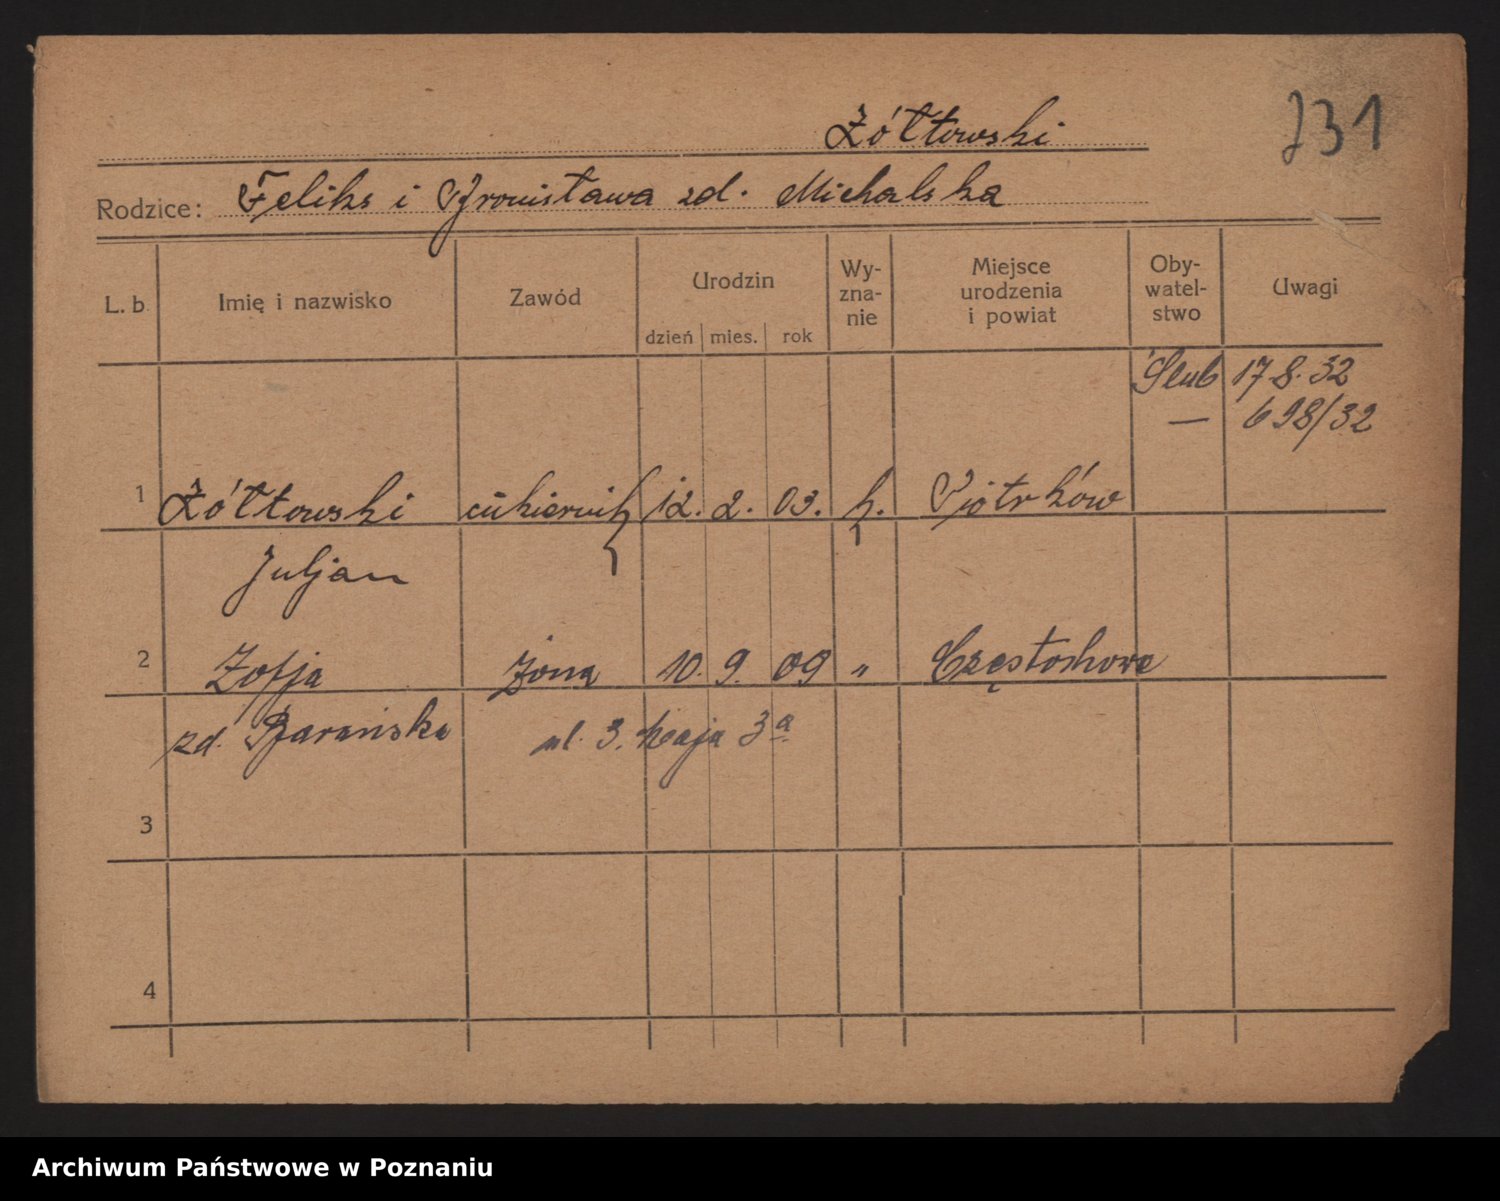 Żółtowski
731
Rodzice: Feliks i Bronisława zd. Michalska
L. b. Imię i nazwisko Zawód Urodzin dzień mies. rok Wy-zna-nie Miejsce urodzenia i powiat Oby-watel-stwo Uwagi
Ślub 17 8. 32
— 698/32
1 Żółtowski cukiernik 12. 2. 03. k. Piotrków
Juljan
2 Zofja żona 10. 9. 09 " Częstochowa
zd. Barańska ul. 3. Maja 3a
3
4
Archiwum Państwowe w Poznaniu